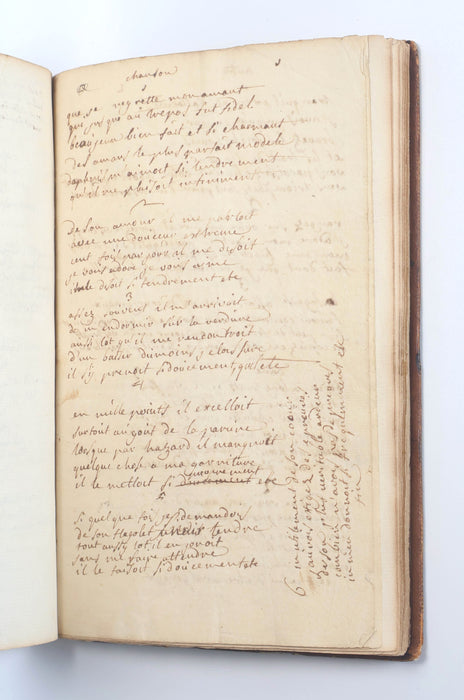 chanson
que je regrette mon amant
que jusque au trepos fut fidel
beau jeun bien fait et si charmant
des amans le plus parfait modele
daphnis m aimoit si tendrement
qu'il me plaisoit infiniment
2
de son amour il me parloit
avec une douceur extreme
cent fois par jour il me disoit
je vous adore je vous aime
il le disoit si tendrement etc
3
assez souvent il m'arrivoit
de m endormir sur la verdure
aussi tot qu'il me
d'un baiser du moins j etois sure
il s'y prenoit si doucement, qu'il etc
4
en mille points il excelloit
surtout au goit de la parure
lorsque par hazard il manquoit
quelque chose a ma garniture
il le mettoit si etc
5
si quelque fois je demandois
de son flajolet un air tendre
tout aussi tot il en jouoit
sans me faire attendre
il le faisoit si doucement etc
6
de son coeur
j'avois exigé des epreuves
de son
combien m en avois
il m en donnoit si frequemment etc
fin